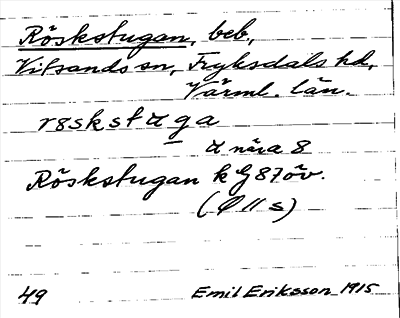 Röskstugan, beb,
Vitsands sn, Fryksdals hd,
Värml. län.
r8skstuga
u nära 8
Röskstugan k G 87öv.
49
Emil Eriksson 1915